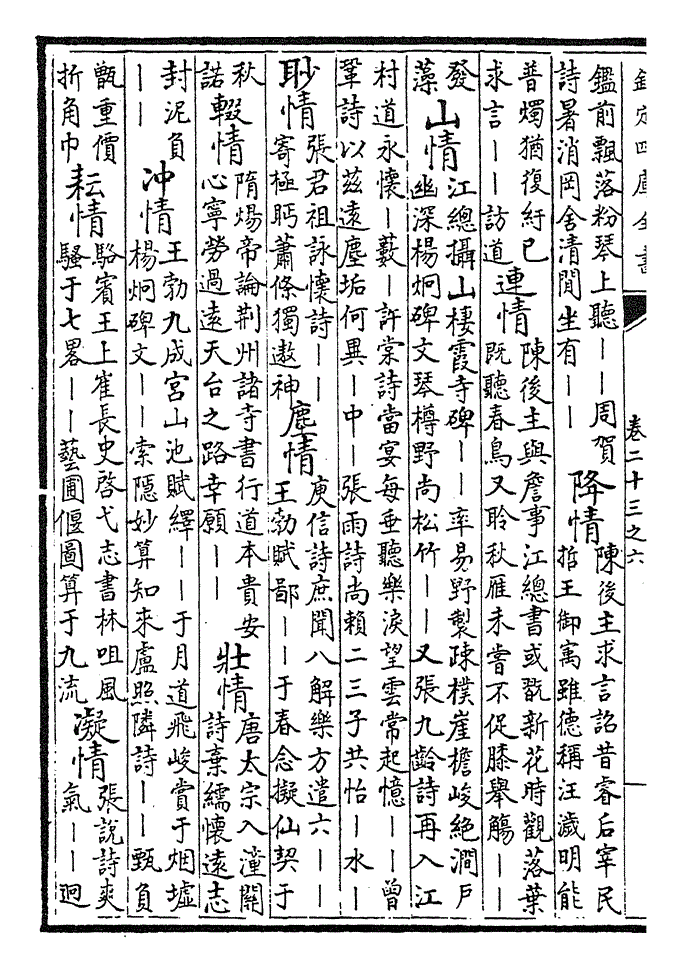 欽定四庫全書
卷二十三之六
鑑前飄落粉琴上聽――周賀
詩暑消岡舍清閒坐有――
降情
陳後主求言詔昔睿后宰民
哲王御寓雖德稱汪濊明能
普燭猶復紆已
求言――訪道
連情
陳後主與詹事江總書或翫新花時觀落葉
既聽春鳥又聆秋雁未嘗不促膝舉觴――
發
藻
山情
江總攝山棲霞寺碑――率易野製疎樸崖檐峻絕澗戶
幽深楊炯碑文琴樽野尚松竹――又張九齡詩再入江
村道永懷―藪―許棠詩當宴每垂聽樂淚望雲常起憶――曾
鞏詩以茲遠塵垢何異―中―張雨詩尚賴二三子共怡―水―
眇情
張君祖詠懷詩――
寄極眄蕭條獨遨神
塵情
庾信詩庶聞八解樂方遣六――
王勃賦鄙――于春念擬仙契于
秋
諾
輟情
隋煬帝論荆州諸寺書行道本貴安
心寧勞過遠天台之路幸願――
壯情
唐太宗入潼關
詩棄繻懷遠志
封泥負
――
沖情
王勃九成宮山池賦繹――于月道飛峻賞于烟墟
楊炯碑文――索隱妙算知來盧照隣詩――甄負
甑重價
折角巾
耘情
駱賓王上崔長史啓弋志書林咀風
騷于七畧――藝圃偃圖算于九流
凝情
張說詩爽
氣――迥